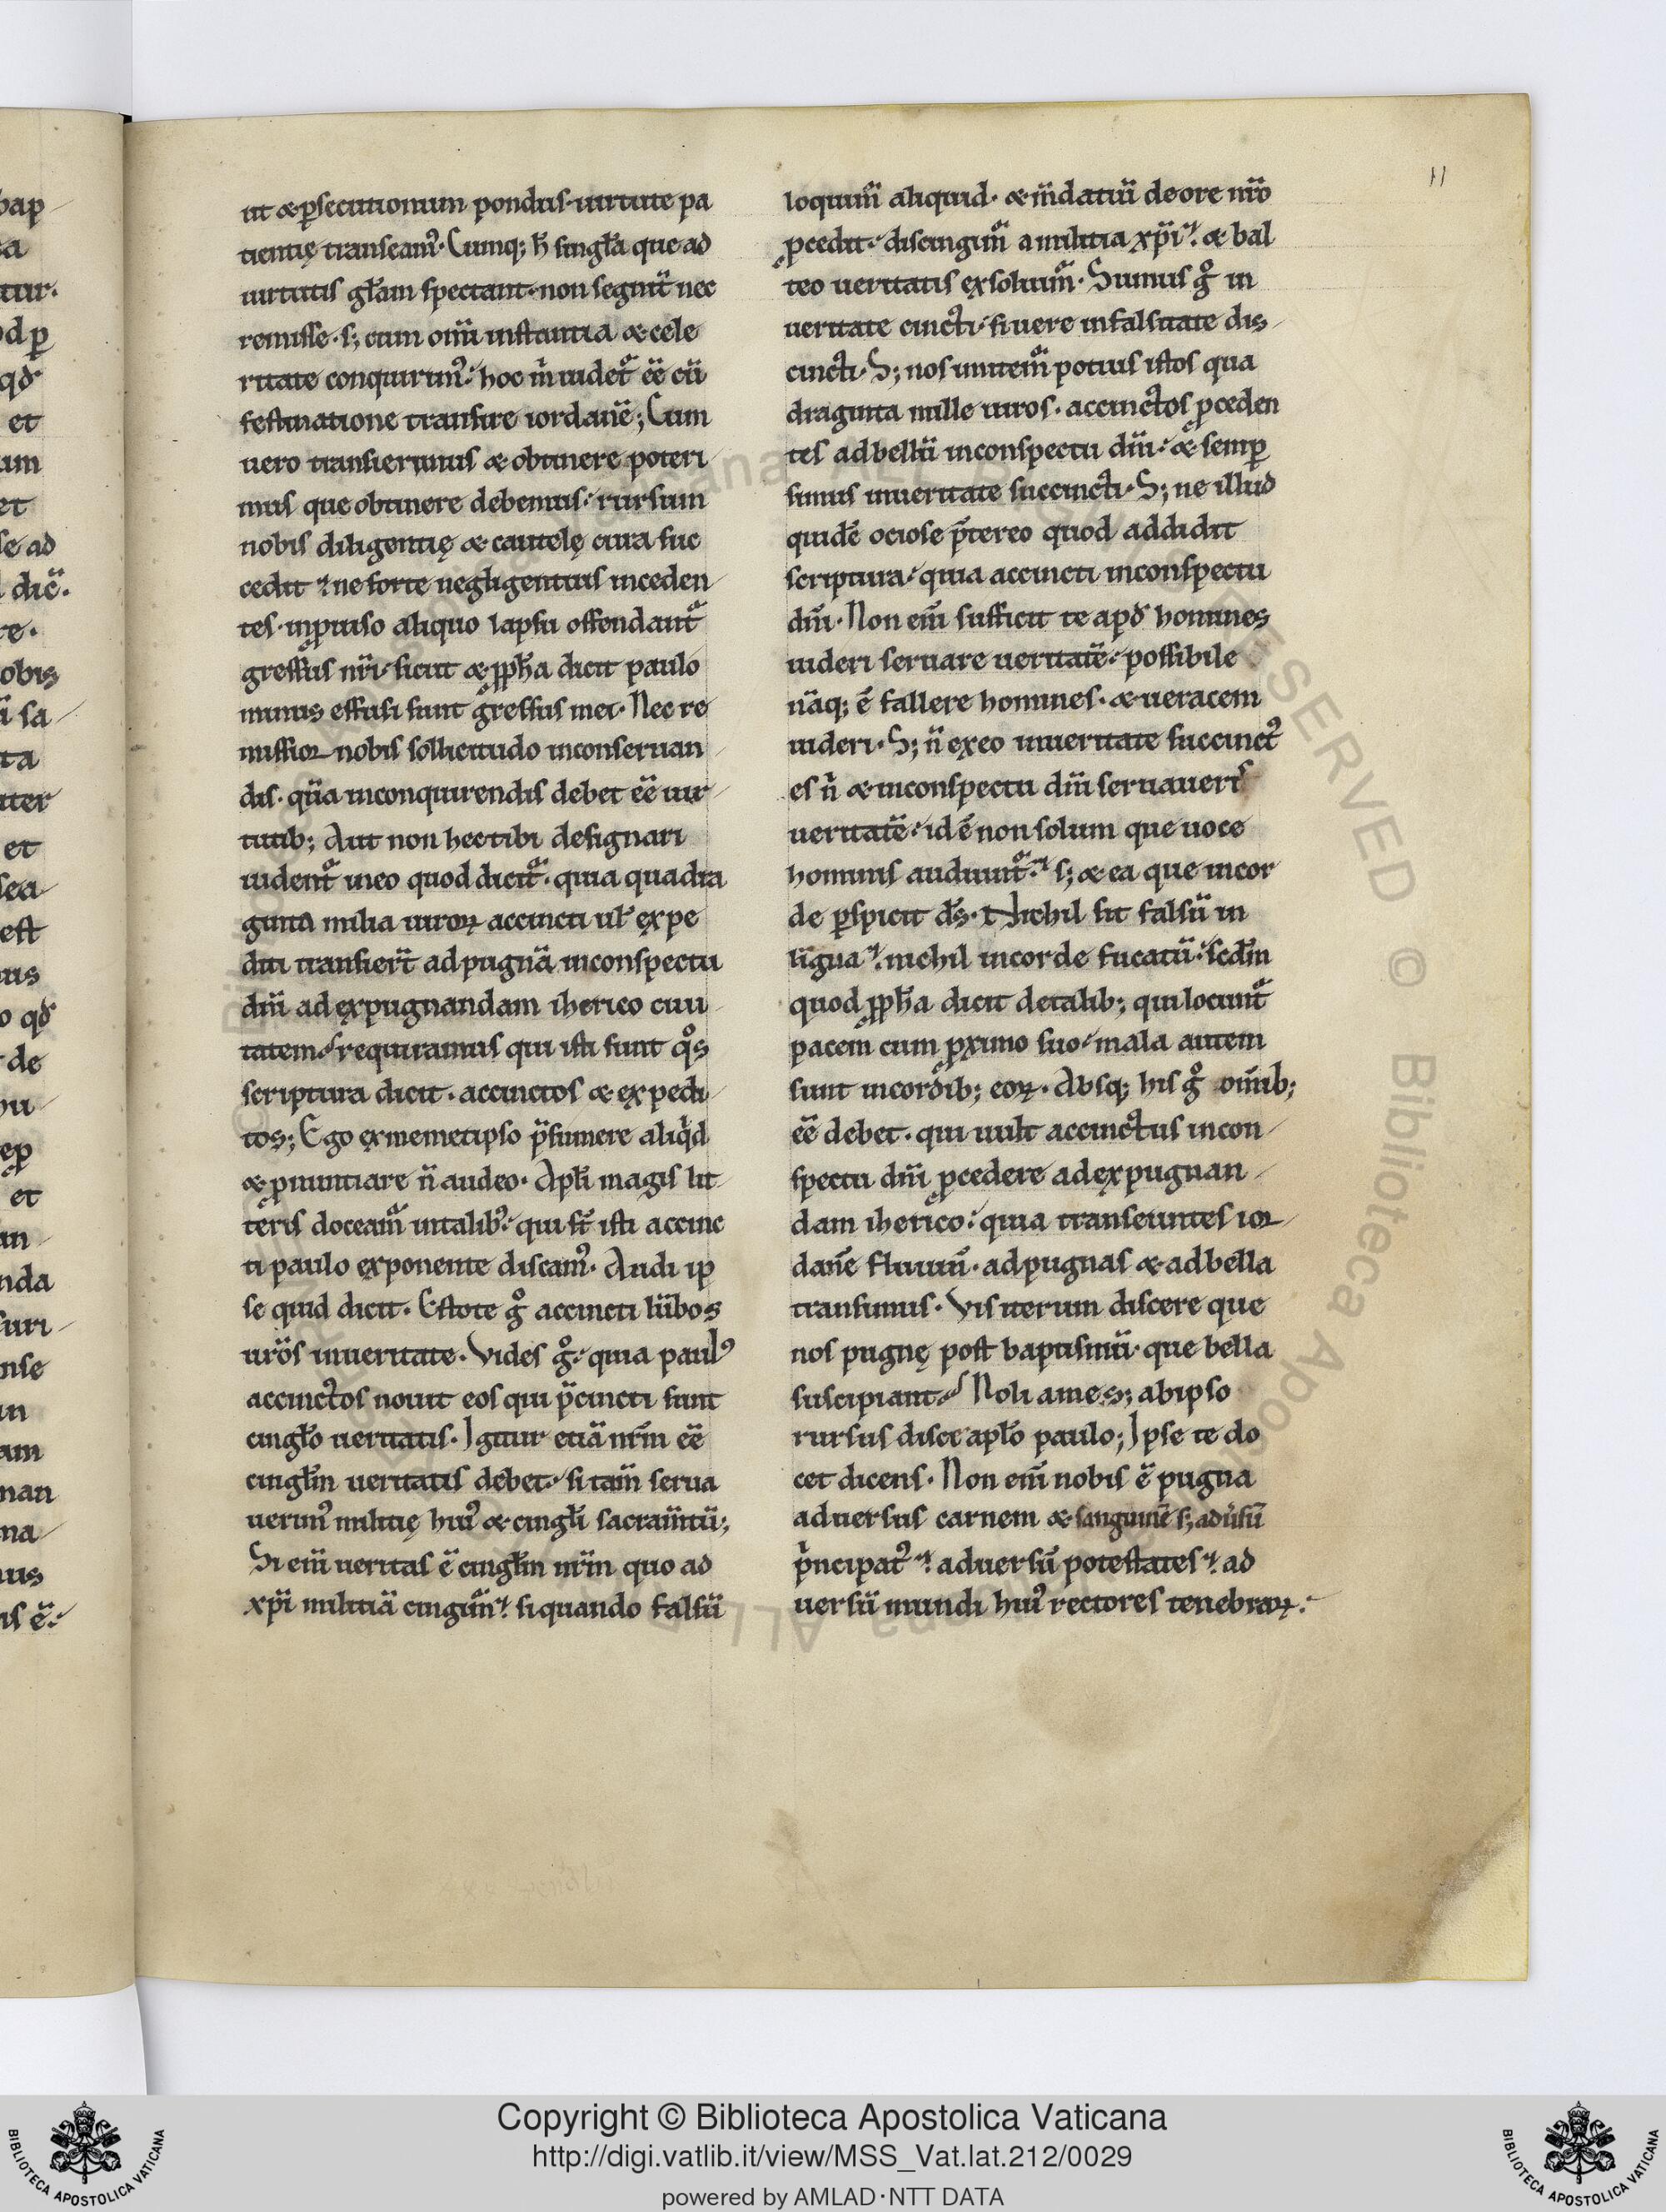 11
ut & p̲secutionum pondus· uirtute pa
tientię transeam᾿· Cumq; h̄ singła que ad
uirtutis głam spectant· non segnit̄ nec
remisse· s; cum om̄i instantia & cele
ritate conquirim᾿· hoc m̄ uidet᷑ ēē cū
festinatione transire iordanē; Cum
uero transierimus & obtinere poteri
mus que obtinere debemus· rursum
nobis diligentię & cautelę cura suc
cedit· ne forte negligentius inceden
tes· inꝓuiso aliquo lapsu offendant᷑
gressus nr̄i· sicut & ꝓph̄a dicit paulo
minus effusi sunt gressus mei· Nec re
missior nobis sollicitudo inconseruan
dis· q̄ua inconquirendis debet ēē uir
tutib; Aut non hec tibi designari
uident᷑ ineo quod dicit᷑· quia quadra
ginta milia uiroꝝ accincti uł expe
diti transier̄t ad pugnā inconspectu
dn̄i ad expugnandam iherico ciui
tatem· requiramus qui isti sunt qͦs
scriptura dicit· accinctos & expedi
tos; Ego exmemetipso p̄sumere aliqͥd
& ꝓnuntiare n̄ audeo· Apłi magis lit
teris doceam᷑ intalib᾿· qui s̄t isti accinc
ti paulo exponente discam᾿· Audi ip
se quid dicit· Estote gͦ accincti lūbos
ur̄os inueritate· Vides gͦ· quia paul᾿
accinctos nouit eos qui p̄cincti sunt
cingło ueritatis· Igitur etiā nr̄m ēē
cingłm ueritatis debet· si tam̄ serua
uerim᾿ militię hui᾿ & cingłi sacram̄tū;
Si eni̅ ueritas ē cingłm nr̄m quo ad
xp̄i militiā cingim᷑· siquando falsū
loquim᷑ aliquid· & m̄datiū de ore nr̄o
ꝓcedit· discingim᷑ a militia xp̄i· & bal
teo ueritatis exsoluim᷑· Simus gͦ in
ueritate cincti· si uere infalsitate dis
cincti· S; nos imitem᷑ potius istos qua
draginta mille uiros· accinctos ꝓceden
tes ad bellū inconspectu dn̄i· & semp̲
simus inueritate succincti· S; ne illud
quidē ociose p̄tereo quod addidit
scriptura· quia accincti inconspectu
dn̄i· Non eni̅ sufficit te apd̄ homines
uideri seruare ueritatē· possibile
nāq; ē fallere homines· & ueracem
uideri· S; n̄ exeo inueritate succinct᾿
es n̄ & inconspectu dn̄i seruaueris
ueritatē· id ē non solum que uoce
hominis audiunt᷑· s; & ea que incor
de p̲spicit ds̄· Nichil sit falsū in
līgua· nichil incorde fucatū· scdm̄
quod ꝓph̄a dicit detalib; qui locunt᷑
pacem cum ꝓximo suo· mala autem
sunt incordib; eoꝝ· Absq; his gͦ om̄ib;
ēē debet· qui uult accinctus incon
spectu dn̄i ꝓcedere ad expugnan
dam iherico· quia transeuntes ior
danē fluuiū· ad pugnas & ad bella
transimus· Vis iterum discere que
nos pugnę post baptismū· que bella
suscipiant· Noli a me s; ab ipso
rursus disce apło paulo; Ipse te do
cet dicens· Non eni̅ nobis ē pugna
aduersus carnem & sanguinē s; adu̓sū
pͥncipat᾿· aduersū potestates· ad
uersū mundi hui᾿ rectores tenebraꝝ·
Copyright © Biblioteca Apostolica Vaticana
http://digi.vatlib.it/view/MSS_Vat.lat.212/0029
powered by AMLAD·NTT DATA
BIBLIOTECA APOSTOLICA VATICANA
BIBLIOTECA APOSTOLICA VATICANA